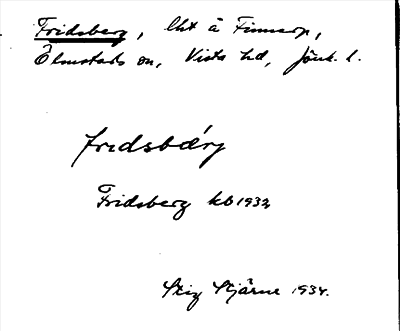 Fridsberg, lht å Finnarp,
Ölmstads sn, Vista hd, Jönk. l.
fridsbærj
Fridsberg kb 1932
Stig Stjärne 1934.